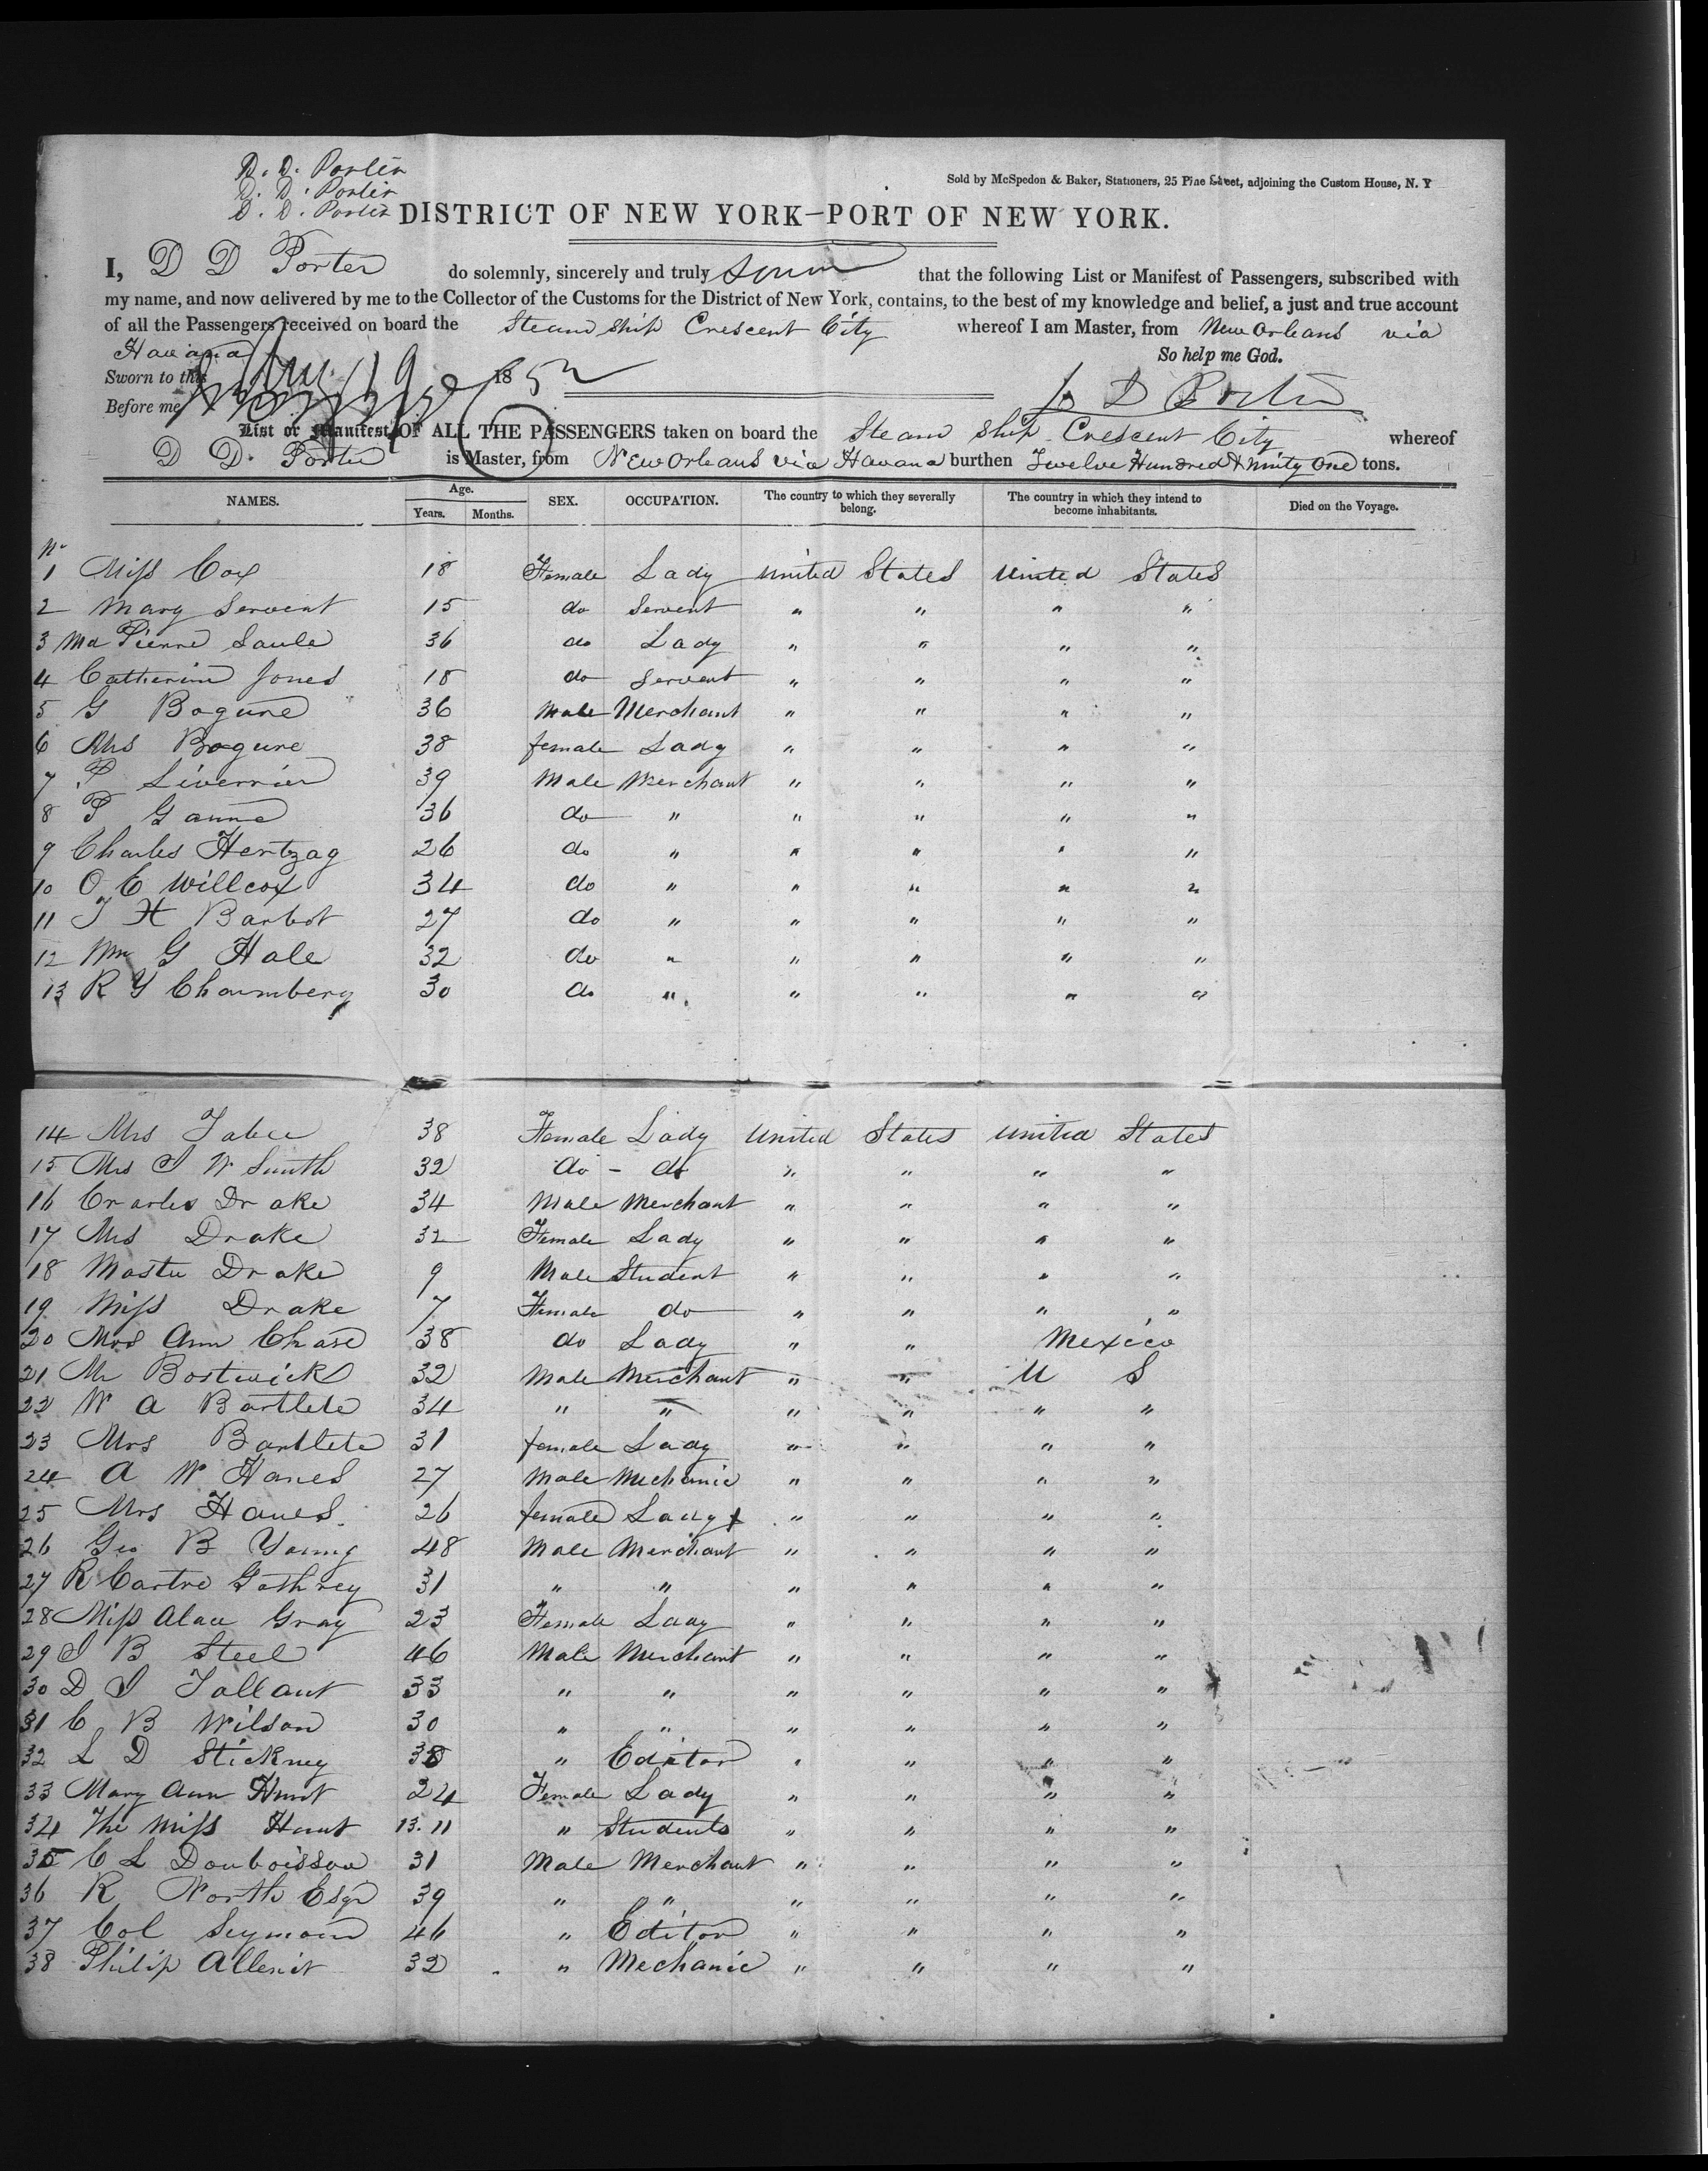 D. D. Porter
D. D. Porter
D. D. Porter
Sold by McSpedon & Baker, Stationers, 25 Pine Street, adjoining the Custom House, N. Y
DISTRICT OF NEW YORK—PORT OF NEW YORK.
I, D D Porter do solemnly, sincerely and truly that the following List or Manifest of Passengers, subscribed with
my name, and now delivered by me to the Collector of the Customs for the District of New York, contains, to the best of my knowledge and belief, a just and true account
of all the Passengers received on board the Steam ship Crescent City whereof I am Master, from New Orleans via
Havana So help me God.
Sworn to this 19 1852
Before me D D Porter
List or Manifest OF ALL THE PASSENGERS taken on board the Steam Ship Crescent City whereof
D D. Porter is Master, from New Orleans via Havana burthen Twelve Hundred & ninity One tons.
NAMES. Age. Years. Months. SEX. OCCUPATION. The country to which they severally belong. The country in which they intend to become inhabitants. Died on the Voyage.
No
1 Miss Cox 18 Female Lady United States United States
2 Mary Servent 15 do Servent " " " "
3 Md Pierre Saule 36 do Lady " " " "
4 Catherine Jones 18 do Servent " " " "
5 G Bogure 36 Male Merchant " " " "
6 Mrs Bogure 38 female Lady " " " "
7 P Liverrier 39 Male Merchant " " " "
8 P Ganne 36 do " " " " "
9 Charles Hertzag 26 do " " " " "
10 O E Willcox 34 do " " " " "
11 J H Barbot 27 do " " " " "
12 Wm G Hale 32 do " " " " "
13 R Y Chaumberg 30 do " " " " "
14 Mrs 38 Female Lady United States United States
15 Mrs J W Smith 32 do - do " " " "
16 Crarles Drake 34 Male Merchant " " " "
17 Mrs Drake 32 Female Lady " " " "
18 Master Drake 9 Male Student " " " "
19 Miss Drake 7 Female do " " " "
20 Mrs Ann Chase 38 do Lady " " Mexico
21 Mr Bostwick 32 Male Merchant " " U S
22 W A Bartlete 34 " " " " " "
23 Mrs Bartlete 31 female Lady " " " "
24 A W Hanes 27 Male Mechanic " " " "
25 Mrs Hanes 26 female Lady " " " "
26 Geo B Young 48 Male Merchant " " " "
27 R Cartre Gathrey 31 " " " " " "
28 Miss Gray 23 Female Lady " " " "
29 J B Steel 46 Male Merchant " " " "
30 D J Tallant 33 " " " " " "
31 C B Wilson 30 " " " " " "
32 L D Stickney 38 " Editor " " " "
33 Mary Ann Hunt 24 Female Lady " " " "
34 The Miss Hunt 13. 11 " Students " " " "
35 C L Douboisson 31 Male Merchant " " " "
36 R North Esqr 39 " " " " " "
37 Col Seymour 46 " Editor " " " "
38 Philip 32 " Mechanic " " " "